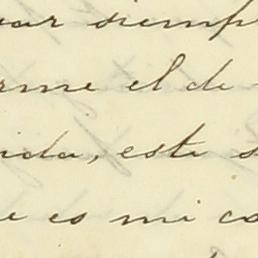 ar siemp
rme el de
ida, este s
e es mi co